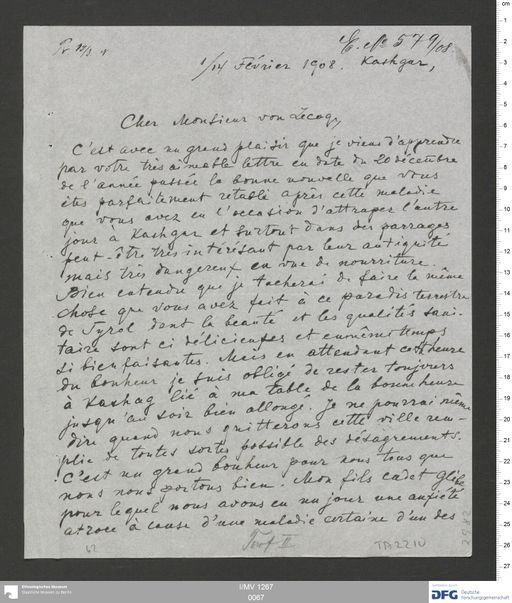 E. No 579/08.
1/14 Février 1908. Kashgar,
Cher Monsieur von Lecoq,
C'est avec un grand plaisir que je viens d'apprendre
par votre très aimable lettre en date du 20 décembre
de l'année passée la bonne nouvelle que vous
êtes parfaitement retabli après cette maladie
que vous avez eu l'occasion d'attraper l'autre
jour à Kashgar et surtout dans des parrages
peut-être très intéresant par leur antiquité
mais très dangereux en vue de nourriture.
Bien entendu que je tacherai de faire la même
chose que vous avez fait à ce paradis terrestre
de Tyrol dont la beauté et les qualités sani-
taire sont ci délicieuses et en même temps
si bienfaisantes. Mais en attendant cette heure
du bonheur je suis obligé de rester toujours
à Kashgar lié à ma table de la bonne heure
jusqu'au soir bien allongé. Je ne pourrai même
dire quand nous quitterons cette ville rem-
plie de toutes sortes possible des désagrements.
C'est un grand bonheur pour nous tous que
nous nous portons bien. Mon fils cadet Glébe
pour lequel nous avons eu un jour une anxiété
atroce à cause d'une maladie certaine d'un des
62
Turf. II
TA 2210
Ethnologisches Museum
Staatliche Museen zu Berlin
I/MV 1267
0067
DFG Deutsche
Forschungsgemeinschaft
cm